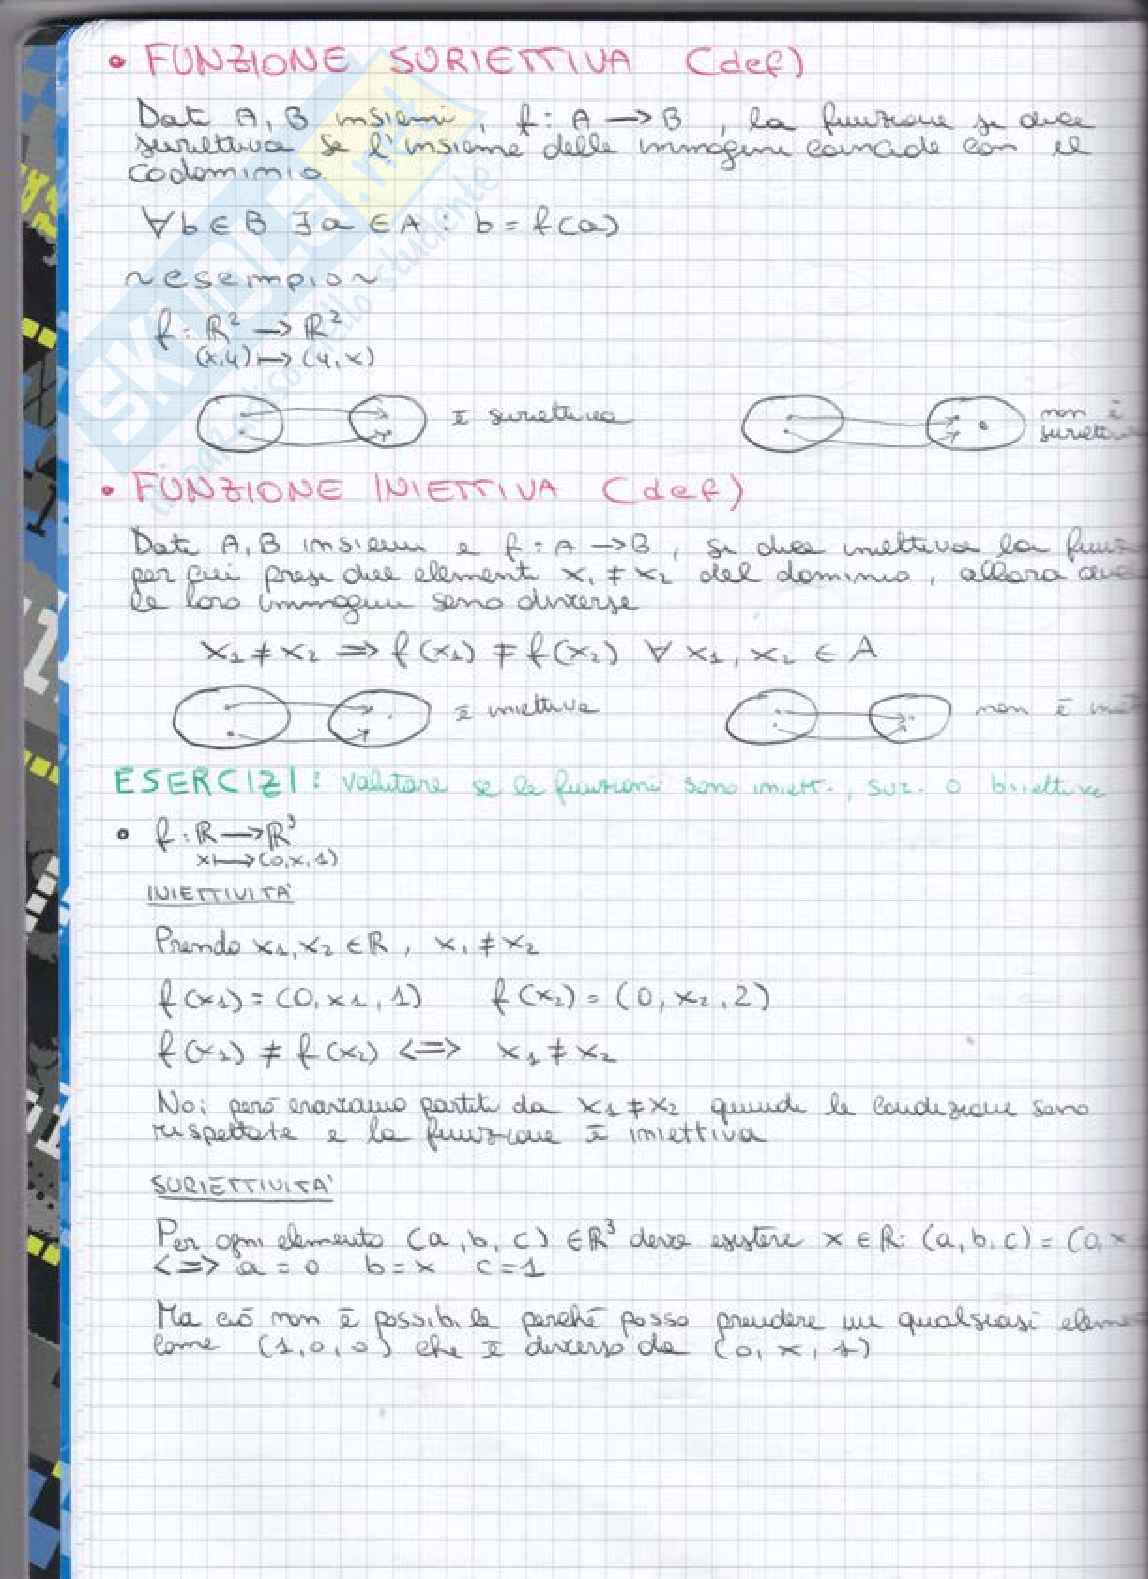 • FUNZIONE SURIETTIVA (def)
Dati A, B insiemi, f: A → B, la funzione si dice
suriettiva se l'insieme delle immagini coincide con il
codominio.
∀b∈B ∃a∈A : b = f(a)
~esempio~
f: ℝ² → ℝ²
(x,y) ↦ (y,x)
è suriettiva
non è
suriettiva
• FUNZIONE INIETTIVA (def)
Dati A, B insiemi e f: A → B, si dice iniettiva la funz
per cui presi due elementi x₁ ≠ x₂ del dominio, allora
le loro immagini sono diverse
x₁ ≠ x₂ ⇒ f(x₁) ≠ f(x₂) ∀ x₁, x₂ ∈ A
è iniettiva
non è iniet
ESERCIZI: valutare se le funzioni sono iniett., sur. o biettive
• f: ℝ → ℝ³
x ↦ (0,x,1)
INIETTIVITA'
Prendo x₁, x₂ ∈ ℝ, x₁ ≠ x₂
f(x₁) = (0, x₁, 1) f(x₂) = (0, x₂, 2)
f(x₁) ≠ f(x₂) <=> x₁ ≠ x₂
Noi però eravamo partiti da x₁ ≠ x₂ quindi le condizioni sono
rispettate e la funzione è iniettiva
SURIETTIVITA'
Per ogni elemento (a, b, c) ∈ℝ³ deve esistere x ∈ ℝ: (a, b, c) = (0, x
<=> a = 0 b = x c = 1
Ma ciò non è possibile perché posso prendere un qualsiasi eleme
come (1,0,0) che è diverso da (0, x, 1)
SKUOLA.net
dello studente